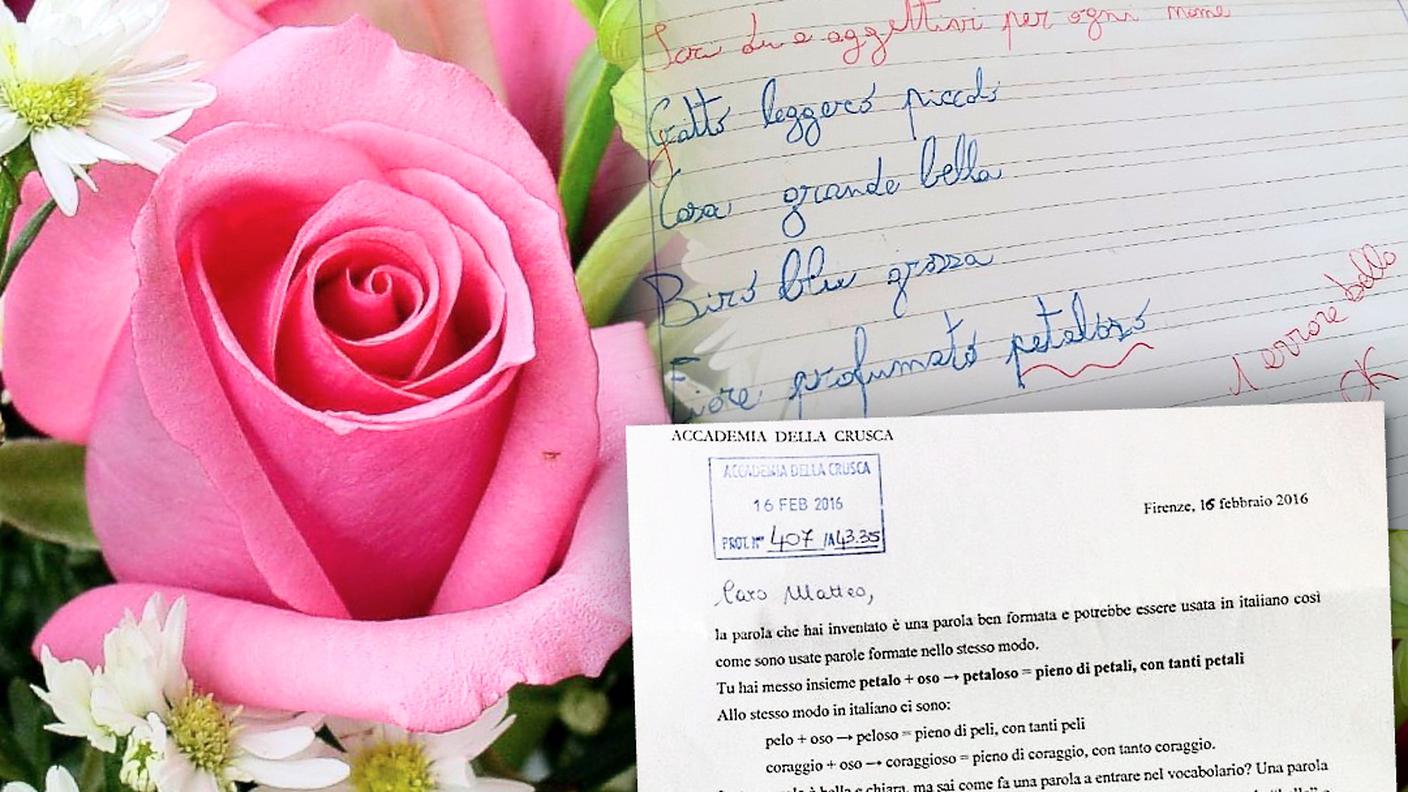 due aggettivi per ogni nome
Gatto leggero piccolo
Casa grande bella
Biro blu grossa
Fiore profumato petaloso
1 errore bello
OK
ACCADEMIA DELLA CRUSCA
ACCADEMIA DELLA CRUSCA
16 FEB 2016
PROT. N° 407 /A43.35
Firenze, 16 febbraio 2016
Caro Matteo,
la parola che hai inventato è una parola ben formata e potrebbe essere usata in italiano così
come sono usate parole formate nello stesso modo.
Tu hai messo insieme petalo + oso → petaloso = pieno di petali, con tanti petali
Allo stesso modo in italiano ci sono:
pelo + oso → peloso = pieno di peli, con tanti peli
coraggio + oso → coraggioso = pieno di coraggio, con tanto coraggio.
è bella e chiara, ma sai come fa una parola a entrare nel vocabolario? Una parola